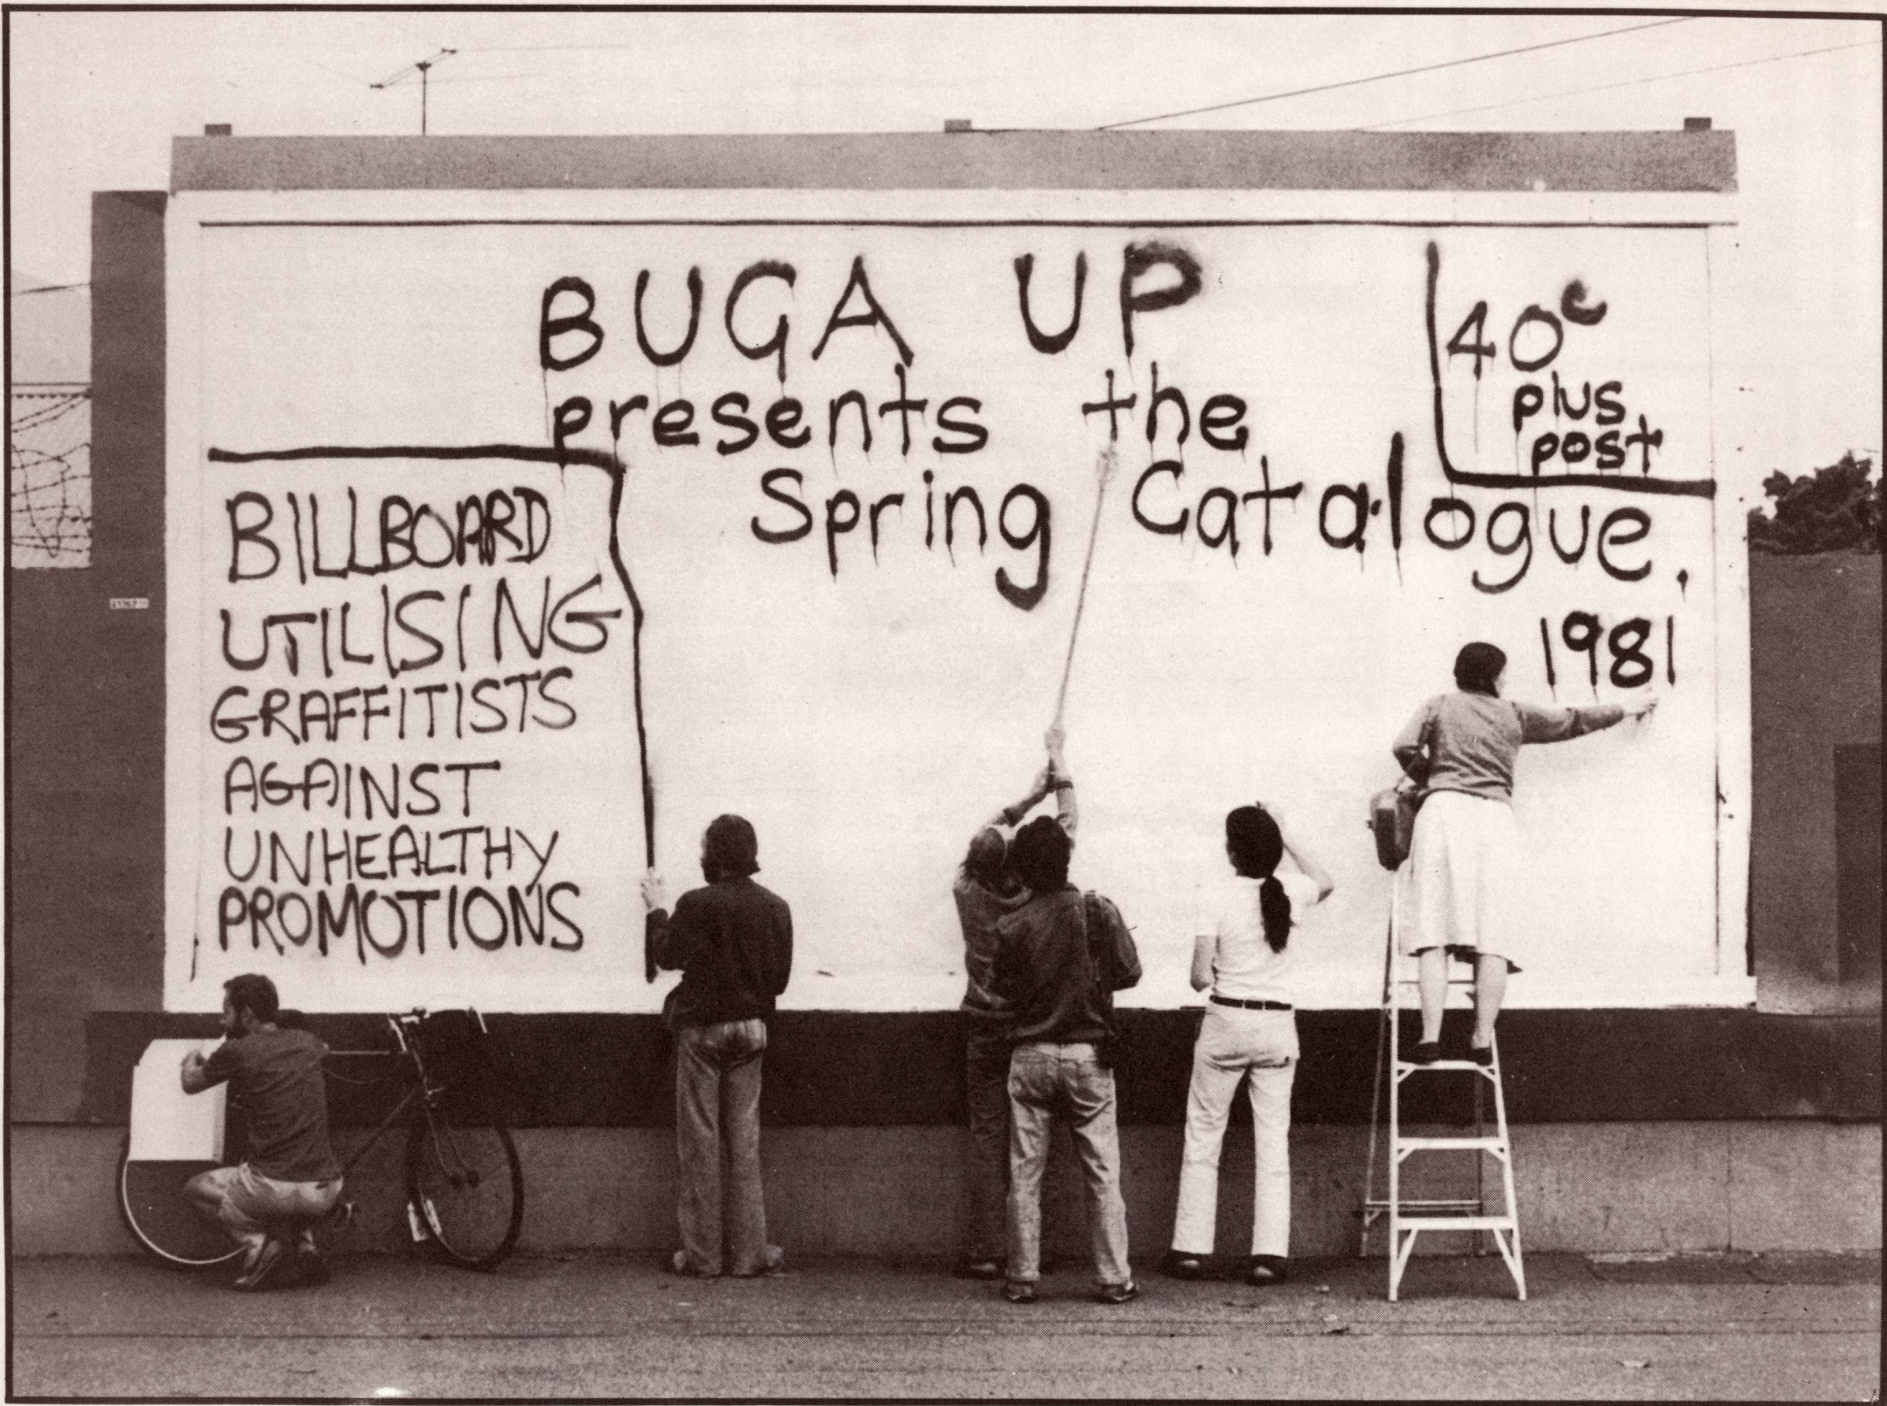 BUGA UP
presents the
Spring Catalogue.
1981
40c
plus
post
BILLBOARD
UTILISING
GRAFFITISTS
AGAINST
UNHEALTHY
PROMOTIONS